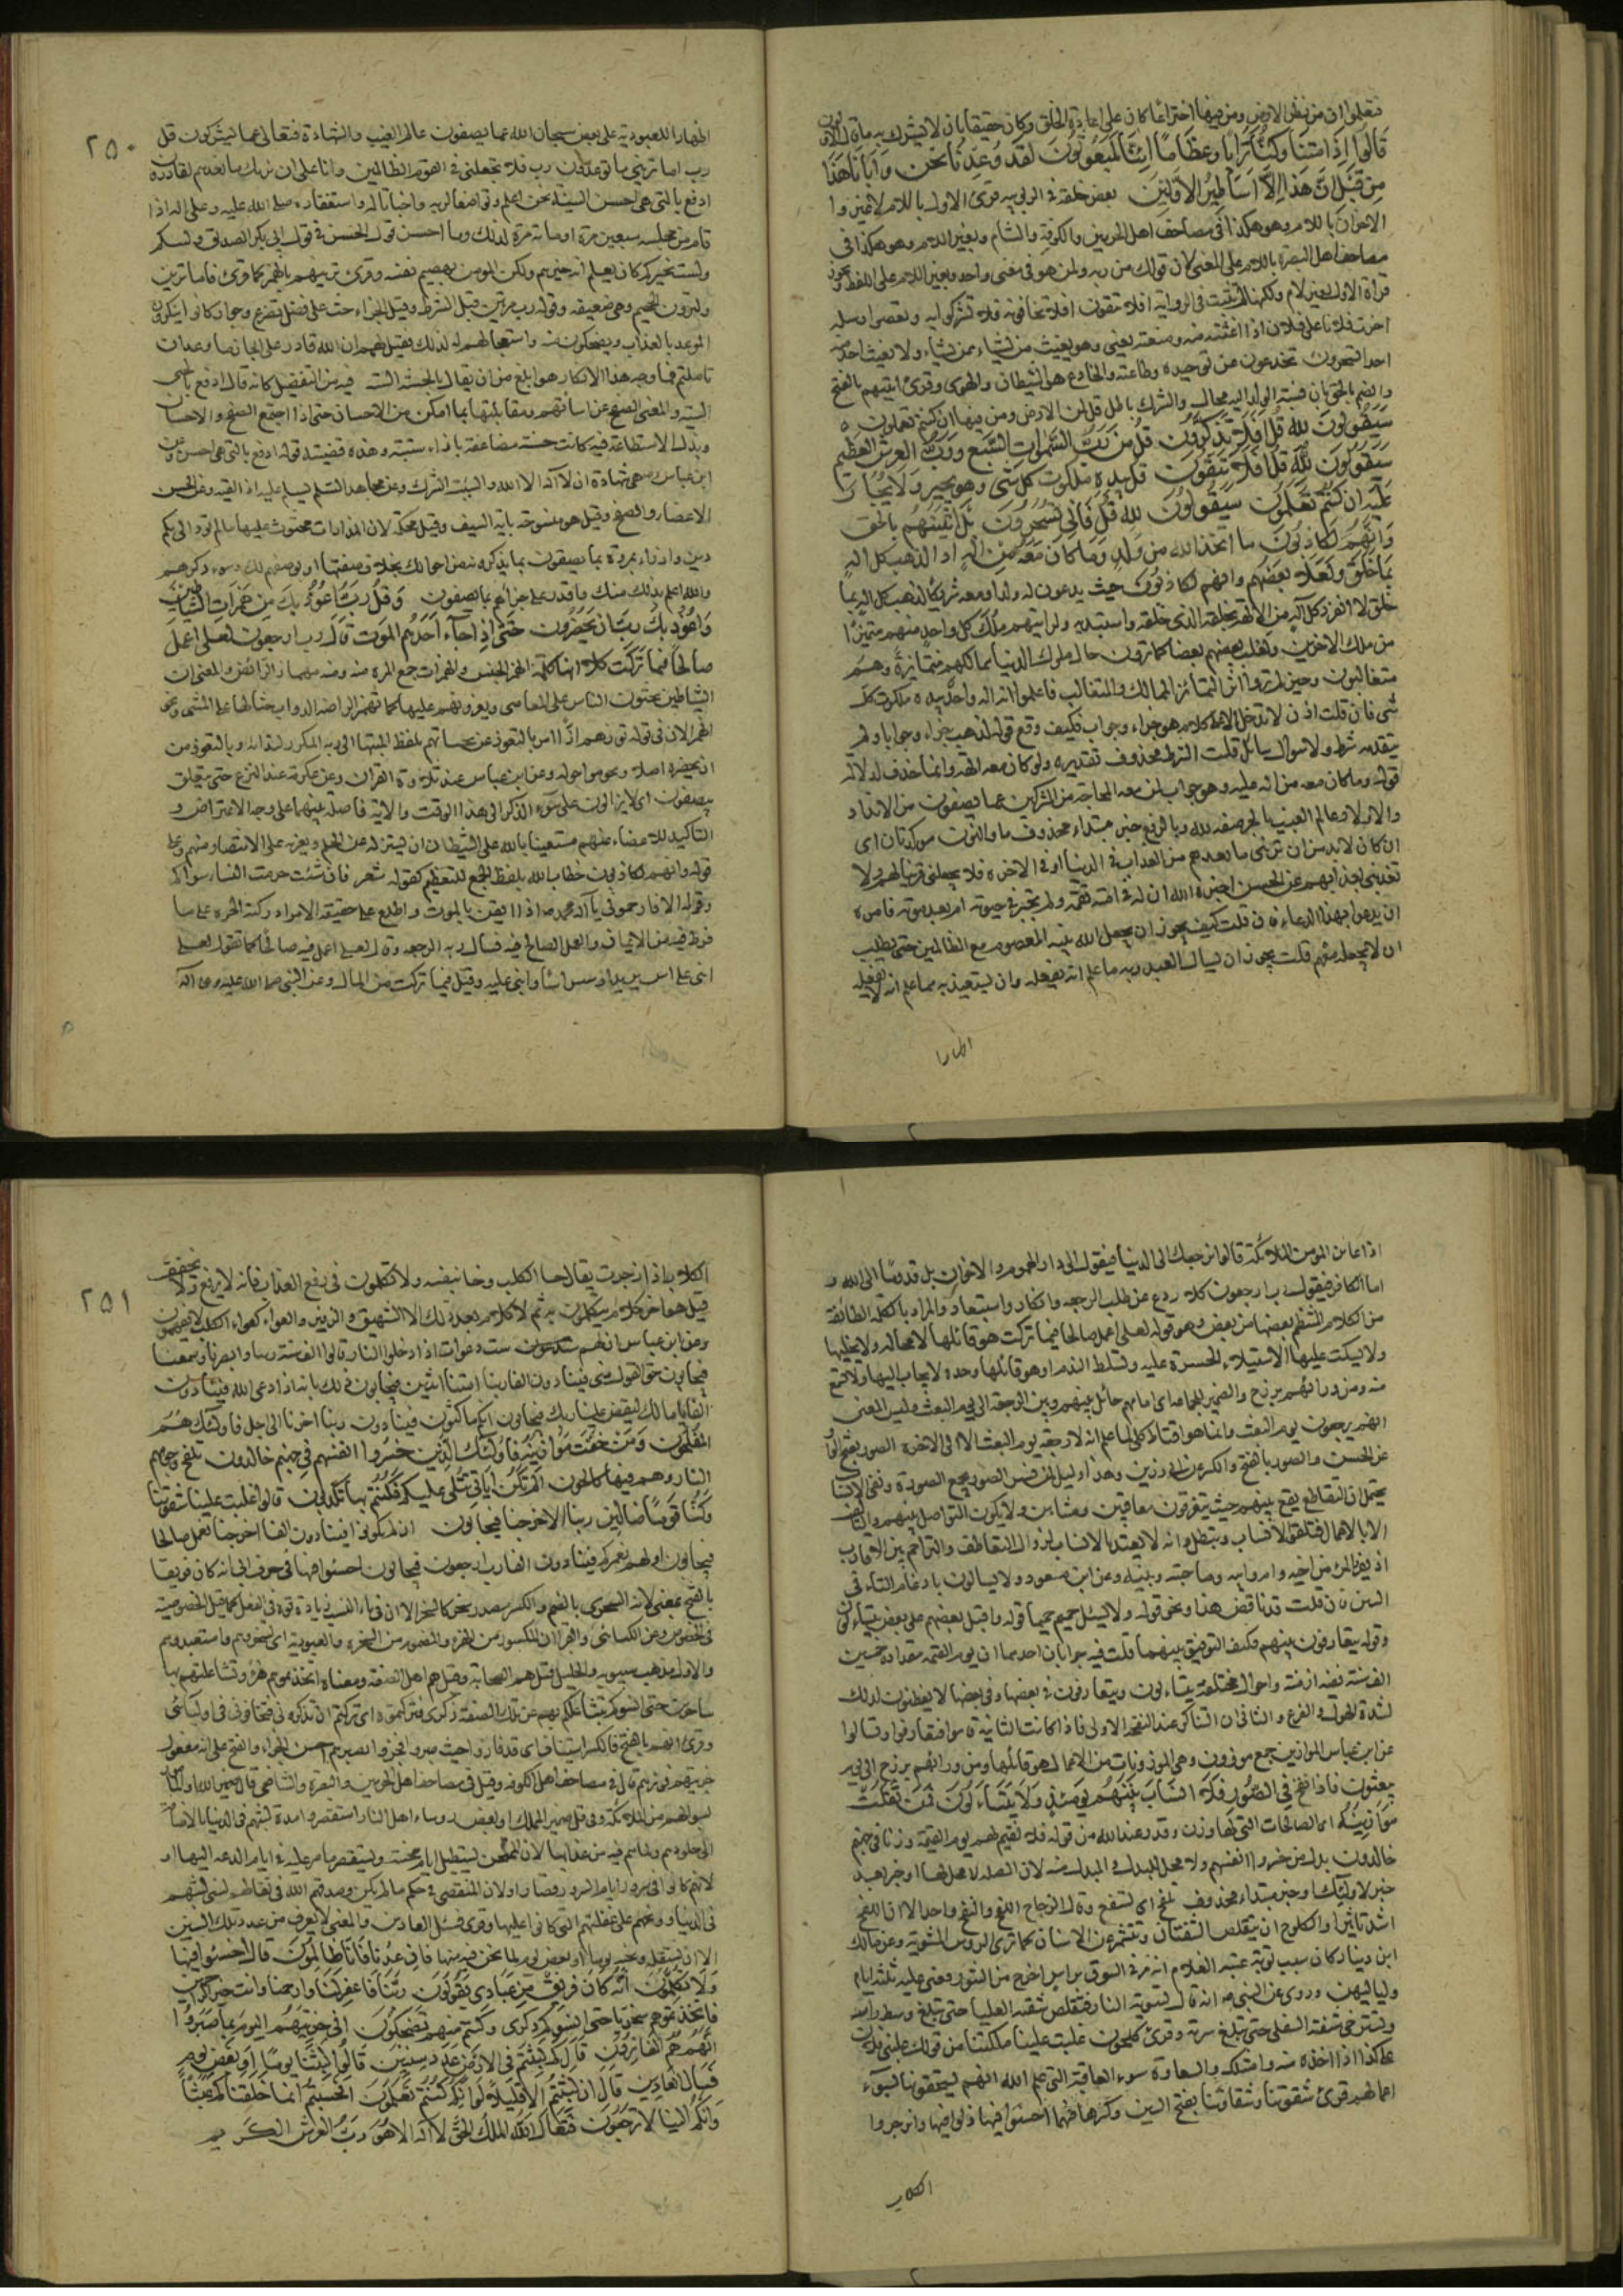 فتعلموا ان من فطر الارض ومن فيها اختراعا كان على اعادة الخلق وكان حقيقا بان لا يشرك به
قَالُوا اَإِذَا مِتنَا وَكُنَّا تُرَابًا وعِظَامًا اَئِنَّا لَمَبْعُوثُونَ لَقَد وُعِدنَا نَحْنُ وَآبَاؤنَا هَذَا
مِن قَبْل اِنْ هَذَا اِلَّا اَسَاطِيرُ الاوَّلينَ بعض خلقه في الربوبيه قرئ الاول باللام لا غير وا
الاخران باللام وهو هكذا في مصاحف اهل الحرمين والكوفة والشام وبغير اللام وهو هكذا في
مصاحف اهل البصرة باللام على المعنى لان قولك من ربه ولمن هو في معنى واحد وبغير اللام على اللفظ ويجوز
قراة الاول بغير لام ولكنها لم تثبت في الرواية افلا تتقون افلا تخافونه فلا تشركوا به وتعصوا رسله
اجرت فلانا على فلان اذا اغثته منه ومنعته يعنى وهو يغيث من يشاء ممن يشاء ولا يغيث احد منه
احدا تسحرون تخدعون عن توحيده وطاعته والخادع هو الشيطان والهوى وقرئ اتيتهم بالفتح
والضم بالحق بان نسبة الولد اليه محال والشرك باطل قل لمن الارض ومن فيها ان كنتم تعلمون
سَيَقُولُونَ لله قُل اَفَلَا تَذَكَّرُونَ قُل مَن رَبُّ السَّموَاتِ السَّبع وَرَبُّ العرش العظيم
سَيَقُولُونَ لِلّه قُل اَفَلَا تَتَّقُونَ قل من بيده ملكوت كل شئ وهو يجير ولا يُجَارُ
عَلَيْه اِن كُنتُم تَعلَمُون سَيَقُولُونَ لله قُل فَاَنَّى تُسْحَرُونَ بَل اَتَيْنَاهُم بالحق
وَاِنَّهُم لَكَاذِبُونَ ما اتخذ الله من وَلَدٍ وَمَا كَانَ مَعَه مِن اله اذا لذهب كل اله
بمَا خَلَقَ وَلَعَلَا بعضهم وانهم لكاذبون حيث يدعون له ولدا ومعه شريكا لذهب كل اله بما
خلق لا انفرد كل اله من الالهة بخلقه الذي خلقه واستبد به ولرايتهم ملك كل واحد منهم متميزا
من ملك الاخرين ولغلب بعضهم بعضا كما ترون حال ملوك الدنيا ممالكهم متمايزة وهم
متغالبون وحين لم تروا اثر التمايز للممالك والتغالب فاعلموا انه اله واحد بيده ملكوت كل
شئ فان قلت اذن لا تدخل الا على كلام هو جزاء وجواب فكيف وقع قوله لذهب جزاء وجوابا ولم
يتقدمه شرط ولا سوال سائل قلت الشرط محذوف تقديره ولو كان معه الهة وانما حذف لدلالة
قوله وما كان معه من اله عليه وهو جواب لمن معه المحاجة من المشركين عما يصفون من الانداد
والاولاد عالم الغيب بالجر صفه لله وبالرفع خبر مبتداء محذوف ما والنون موكدتان اى
ان كان لا بد من ان ترينى ما تعدهم من العذاب في الدنيا او في الاخرة فلا تجعلنى قرينا لهم ولا
تعذبنى بعذابهم عن الحسن اخبره الله ان له في امته نقمة ولم يخبره في حيوته ام بعد موته فامره
ان يدعوا بهذا الدعاء فان قلت كيف يجوز ان يجعل الله نبيه المعصوم مع الظالمين حتى يطلب
ان لا يجعله معهم قلت يجوز ان يسال العبد ربه ما علم انه يفعله وان يستعيذ به مما علم انه لا يفعله
اظهارا
٢٥٠
اظهارا للعبودية على بعض سبحان الله عما يصفون عالم الغيب والشهادة فتعالى عما يشركون قل
رب اما ترينى ما يوعدون رب فلا تجعلنى في القوم الظالمين وانا على ان نريك ما نعدهم لقادرون
ادفع بالتى هى احسن السيئة نحن اعلم وتواضعا لربه واخباتا له واستغفاره صلى الله عليه وعلى اله اذا
قام من مجلسه سبعين مرة او مائة مرة لذلك وما احسن قول الحسن في قول ابى بكر الصديق وليتكم
ولست بخيركم كان يعلم انه خيرهم ولكن المومن يهضم نفسه وقرئ ترينهم بالهمز كما قرئ فاما ترين
ولترون الجحيم وهى ضعيفه وقوله رب مرتين قبل الشرط وقبل الجزاء حث على فضل تضرع وجوار كانوا ينكرون
الموعد بالعذاب ويضحكون منه واستعجالهم له لذلك فقيل لهم ان الله قادر على انجاز ما وعد ان
تاملتم فما وجه هذا الانكار هو ابلغ من ان يقال بالحسنة السيئة فيه من التفضيل كانه قال ادفع بالحسنى
السيئة والمعنى الصفح عن اساتهم ومقابلتها بما امكن من الاحسان حتى اذا اجتمع الصفح والاحسان
وبذل الاستطاعة فيه كانت حسنة مضاعفة باذاء سيئة وهذه قضية قوله ادفع بالتى هى احسن وعن
ابن عباس هى شهادة ان لا اله الا الله والسيئة الشرك وعن مجاهد السلم يسلم عليه اذا لقيه وعن الحسن
الاغضاء والصفح وقيل هى منسوخة باية السيف وقيل محكمة لان المدارات محثوث عليها ما لم تود الى ثلم
دين وازراء بمروة بما يصفون بما يذكرونه من احوالك بخلاف صفتها او بوصفهم لك وسوء ذكرهم
والله اعلم بذلك منك واقدر على جزائهم بما يصفون وَقُل رَبِّ اَعُوذُ بِكَ مِن هَمَزَاتِ الشَّيَاطِين
وَاَعُوذُ بِكَ رَبّ اَن يَحضُرُون حَتَّى اِذَا جَاءَ اَحَدَهُم المَوتُ قَالَ رب ارجعون لَعَلّى اعمل
صالحًا فيما تَرَكت كلا انها كلمة الهمز الخس والهمزات جمع المرة منه ومنه مهماز الرائض والمعنى ان
الشياطين يحثون الناس على المعاصى ويغرونهم عليها كما تهمز الراضة الدواب حثا لها على المشى ونحو
الهمز الاز في قوله توزهم ازا امر بالتعوذ عن نخساتهم بلفظ المبتهل الى ربه المكرر لندائه وبالتعوذ من
ان يحضروه اصلا ويحوموا حوله وعن ابن عباس عند تلاوة القران وعن عكرمة عند النزع حتى يتعلق
بيصفون اى لا يزالون على سوء الذكر الى هذا الوقت والاية فاصلة بينهما على وجه الاعتراض و
التاكيد للاغضاء عنهم مستعينا بالله على الشيطان ان يستزله عن الحلم ويغريه على الانتصار منهم وعلى
قوله وانهم لكاذبون خطاب الله بلفظ الجمع للتعظيم كقوله شعر فان شئت حرمت النساء سواكم
وقوله الا فارحمونى يا اله محمد اذا ايقن بالموت واطلع على حقيقة الامر ادركته الحسرة على ما
فرط فيه من الايمان والعمل الصالح فيه فسال ربه الرجعة وقال لعلى اعمل فيه صالحا كما تقول لعلى
ابنى على اس يريد اوسس اسا وابنى عليه وقيل فيما تركت من المال وعن النبى صلى الله عليه وعلى اله
اذا عاين المومن الملائكة قالوا نرجعك الى الدنيا فيقول الى دار الهموم والاحزان بل قدوما الى الله و
اما الكافر فيقول رب ارجعون كلا ردع عن طلب الرجعه وانكار واستبعاد والمراد بالكلمة الطائفة
من الكلام المنتظم بعضها من بعض وهو قوله لعلى اعمل صالحا فيما تركت هو قائلها لا محالة ولا يخليها
ولا يسكت عليها الاستيلاء الحسرة عليه وتسلط الندم او هو قائلها وحده لا يجاب اليها ولا تسمع
منه ومن ورائهم برزخ والضمير للجماعة اى امامهم حائل بينهم وبين الرجعة الى يوم البعث وليس المعنى
انهم يرجعون يوم البعث وانما هو اقناط كلى لما علم انه لا رجعة يوم البعث الا الى الاخرة الصور بفتح الواو
عن الحسن والصور بالفتح والكسر عن ابى رزين وهذا دليل لمن فسر الصور بجمع الصورة ونفى الانساب
يحتمل ان التقاطع يقع بينهم حيث يتفرقون معاقبين ومثابين ولا يكون التواصل بينهم والتالف
الا بالاعمال فتلغوا الانساب وتبطل وانه لا يعتد بالانساب لزوال التعاطف والتراحم بين الاقارب
اذ يفر المرء من اخيه وامه وابيه وصاحبته وبنيه وعن ابن مسعود ولا يسالون بادغام التاء في
السين فان قلت قد ناقض هذا ونحو قوله ولا يسئل حميم حميما قوله واقبل بعضهم على بعض يتساءلون
وقوله يتعارفون بينهم فكيف التوفيق بينهما قلت فيه جوابان احدهما ان يوم القيمة مقداره خمسين
الف سنة ففيه ازمنة واحوال مختلفة يتساءلون ويتعارفون في بعضها وفي بعضها لا يفطنون لذلك
لشدة الهول والفزع والثانى ان التناكر عند النفخة الاولى فاذا كانت الثانية قاموا فتعارفوا وتسالوا
عن ابن عباس الموازين جمع موزون وهى الموزونات من الاعمال هو قائلها ومن ورائهم برزخ الى يوم
يبعثون فاذا نفخ في الصُّور فَلَا اَنسَابَ بَيْنَهُم يَومَئِذٍ وَلَا يَتَسَاءَلُونَ فَمَن ثَقُلَت
مَوَازِينُهُ اى الصالحات التى لها وزن وقدر عند الله من قوله فلا نقيم لهم يوم القيمة وزنا في جهنم
خالدون بدل من خسروا انفسهم ولا محل للبدل والمبدل منه لان الصلة لا محل لها او خبر بعد
خبر لاولئك او خبر مبتداء محذوف تلفح اى تسفع وقال الزجاج اللفح والنفح واحد الا ان اللفح
اشد تاثيرا والكلوح ان يتقلص الشفتان وتتشمر عن الاسنان كما ترى الروس المشوية وعن مالك
ابن دينار كان سبب توبة عتبة الغلام انه مر في السوق براس اخرج من التنور فغشى عليه ثلثة ايام
ولياليهن وروى عن النبى انه قال تشويه النار فتقلص شفته العليا حتى تبلغ وسط راسه
وتسترخى شفته السفلى حتى تبلغ سرته وقرئ كلحون غلبت علينا ملكتنا من قولك غلبنى فلان
على كذا اذا اخذه منه وامتلكه والشقاوة سوء العاقبة التى علم الله انهم يستحقونها بسوء
اعمالهم قرئ شقوتنا وشقاوتنا بفتح الشين وكسرها فيهما اخسئوا فيها ذلوا فيها وانزجروا
الكلاب
٢٥١
الكلاب اذا زجرت يقال خسا الكلب وخسا بنفسه ولا تكلمون في رفع العذاب فانه لا يرفع ولا يخفف
قيل هو اخر كلام يتكلمون به ثم لا كلام بعد ذلك الا الشهيق والزفير والعواء كعواء الكلاب لا يفهمون
وعن ابن عباس ان لهم ست دعوات اذا دخلوا النار قالوا الف سنة ربنا ابصرنا وسمعنا
فيجابون حق القول منى فينادون الفا ربنا امتنا اثنتين فيجابون ذلك بانه اذا دعى الله فينادون
الفا يا مالك ليقض علينا ربك فيجابون انكم ماكثون فينادون ربنا اخرنا الى اجل فاولئك هُم
المُفلِحُون وَمَن خَفَّت مَوَازِينُه فَاُولئكَ الَّذِينَ خسروا انفسهم في جهنم خالدون تلفح وجوههم
النار وهم فيها كالحون اَلَم تكن اياتى تُتلى عليكم فكُنتُم بها تكذبون قالوا غلبت علينا شقوتنا
وَكُنَّا قَومًا ضالين ربنا اخرجنا فيجابون اولم تكونوا فينادون الفا اخرجنا نعمل صالحا
فيجابون اولم نعمركم فينادون الفا رب ارجعون فيجابون اخسئوا فيها في حرف ابى انه كان فريق
بالفتح بمعنى لانه السخرى بالضم والكسر مصدر سخر كالسخر الا ان في ياء النسب زيادة قوة في الفعل كما قيل الخصوصية
في الخصوص وعن الكسائى والفراء ان المكسور من الهزء والمضموم من السخرة والعبودية اى تسخروهم واستعبدوهم
والاول مذهب سيبويه والخليل قيل هم الصحابة وقيل هم اهل الصفة ومعناه اتخذتموهم هزوا وتشاغلتم بهم
ساخرين حتى انسوكم بتشاغلكم بهم على تلك الصفة ذكرى فتركتموه اى تركتم ان تذكرونى فتخافونى في اوليائى
وقرئ انهم بالفتح فالكسر استيناف اى قد فازوا حيث صبروا فجزوا بصبرهم احسن الجزاء والفتح على انه مفعول
جزيتهم فوزهم قال في مصاحف اهل الكوفة وقل في مصاحف اهل الحرمين والبصرة والشام ففى قال ضمير الله او المامور
بسوالهم من الملائكة وفي قل ضمير الملك او بعض روساء اهل النار استقصروا مدة لبثهم في الدنيا بالاضافة
الى خلودهم ولما هم فيه من عذابها لان الممتحن يستطيل ايام محنته ويستقصر ما مر عليه من ايام الدعة اليها او
لانهم كانوا في سرور وايام السرور قصار او لان المنقضى في حكم ما لم يكن وصدقهم الله في تقالهم لسنى لبثهم
في الدنيا ووبخهم على غفلتهم التى كانوا عليها وقرئ فسئل العادين والمعنى لا نعرف من عدد تلك السنين
الا انا نستقله ونحسبه يوما او بعض يوم لما نحن فيه منها فان عُدنَا فَاِنَّا ظَالِمُونَ قالَ اخسئوا فيها
وَلَا تُكَلِّمُون اِنَّه كَانَ فَرِيقٌ مِن عِبَادِى يَقُولُونَ رَبَّنَا فَاغفِر لَنَا وارحمنا وانت خير الراحمين
فاتخذتموهم سخريا حتى انسوكم ذكرى وكنتم منهم تَضحَكُونَ انى جزيتهم اليوم بِما صَبَرُوا
اَنَّهُم هُمُ الفَائِزُونَ قَالَ كَم لَبِثتُم فِى الارض عَدَدَ سِنِينَ قَالُوا لَبِثنَا يومًا اَو بَعضَ يوم
فَسئَل العَادّين قَالَ اِن لَبِثتُم اِلَّا قَلِيلًا لَو اَنَّكُم كُنتُم تَعلَمُونَ اَفَحَسِبتُم اَنما خَلَقنَاكم عَبَثًا
وَاَنَّكُم الينا لا ترجَعُونَ فَتَعَالى اللهُ الملكُ الحَقُّ لا اله الا هُو رَبُّ العَرش الكَريم